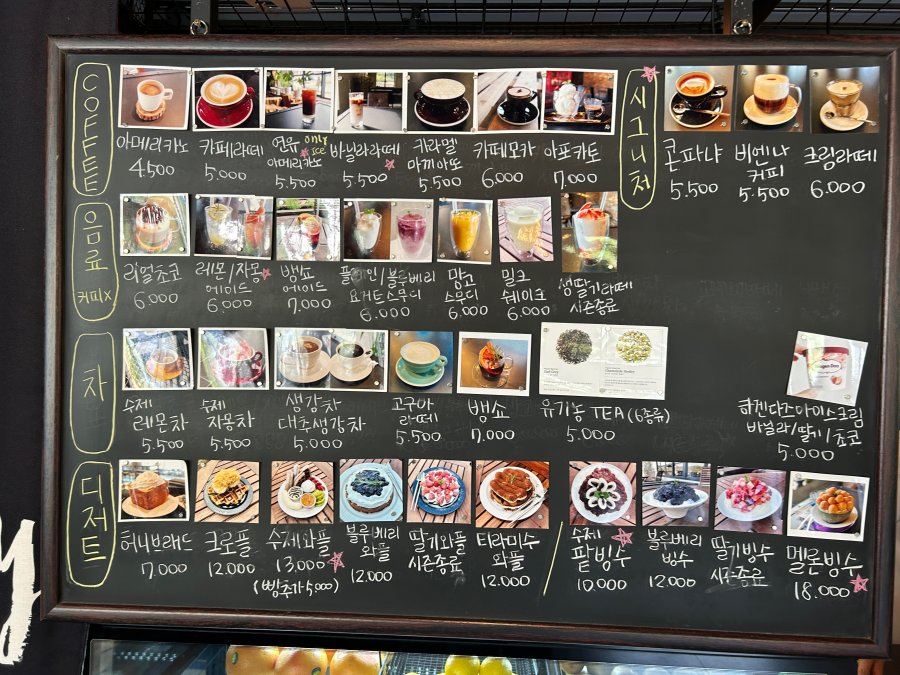 COFFEE
아메리카노
4.500
카페라떼
5.000
연유 only ice
아메리카노
5.500
바닐라라떼
5.500
카라멜
마끼아또
5.500
카페모카
6.000
아포카토
7.000
시그니처
콘파냐
5.500
비엔나
커피
5.500
크림라떼
6.000
음료
커피X
리얼초코
6.000
레몬/자몽
에이드
6.000
뱅쇼
에이드
7.000
플레인/블루베리
요거트스무디
6.000
망고
스무디
6.000
밀크
쉐이크
6.000
생딸기라떼
시즌종료
차
수제
레몬차
5.500
수제
자몽차
5.500
생강차
대추생강차
5.000
고구마
라떼
5.500
뱅쇼
7.000
유기농 TEA (6종류)
5.000
하겐다즈아이스크림
바닐라/딸기/초코
5.000
디저트
허니브래드
7.000
크로플
12.000
수제와플
13.000
(빵추가 5,000)
블루베리
와플
12.000
딸기와플
시즌종료
티라미수
와플
12.000
수제
팥빙수
10.000
블루베리
빙수
12.000
딸기빙수
시즌종료
멜론빙수
18.000